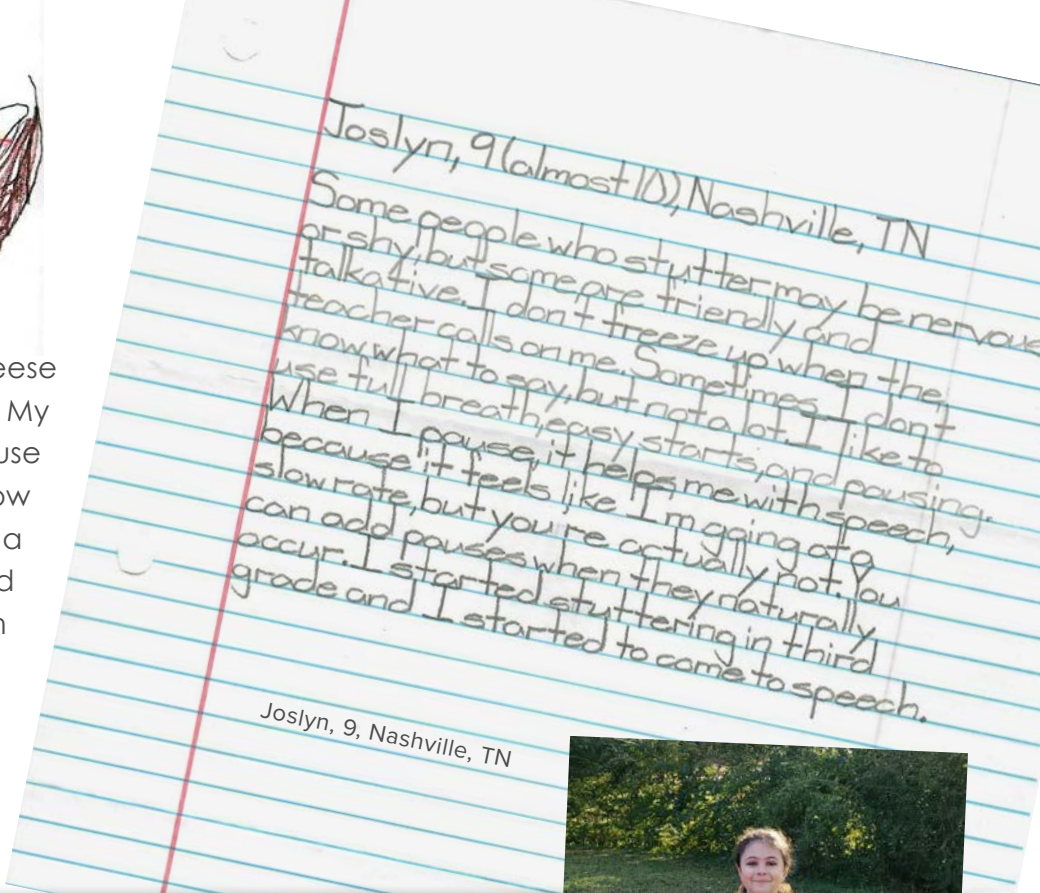 eese
My
use
ow
a
d
n
Joslyn, 9 (almost 10), Nashville, TN
Some people who stutter may be nervous
or shy, but some are friendly and
talkative. I don't freeze up when the
teacher calls on me. Sometimes I don't
know what to say, but not a lot. I like to
use full breath, easy starts, and pausing.
When I pause, it helps me with speech,
because it feels like I'm going at a
slow rate, but you're actually not. You
can add pauses when they naturally
occur. I started stuttering in third
grade and I started to come to speech.
Joslyn, 9, Nashville, TN